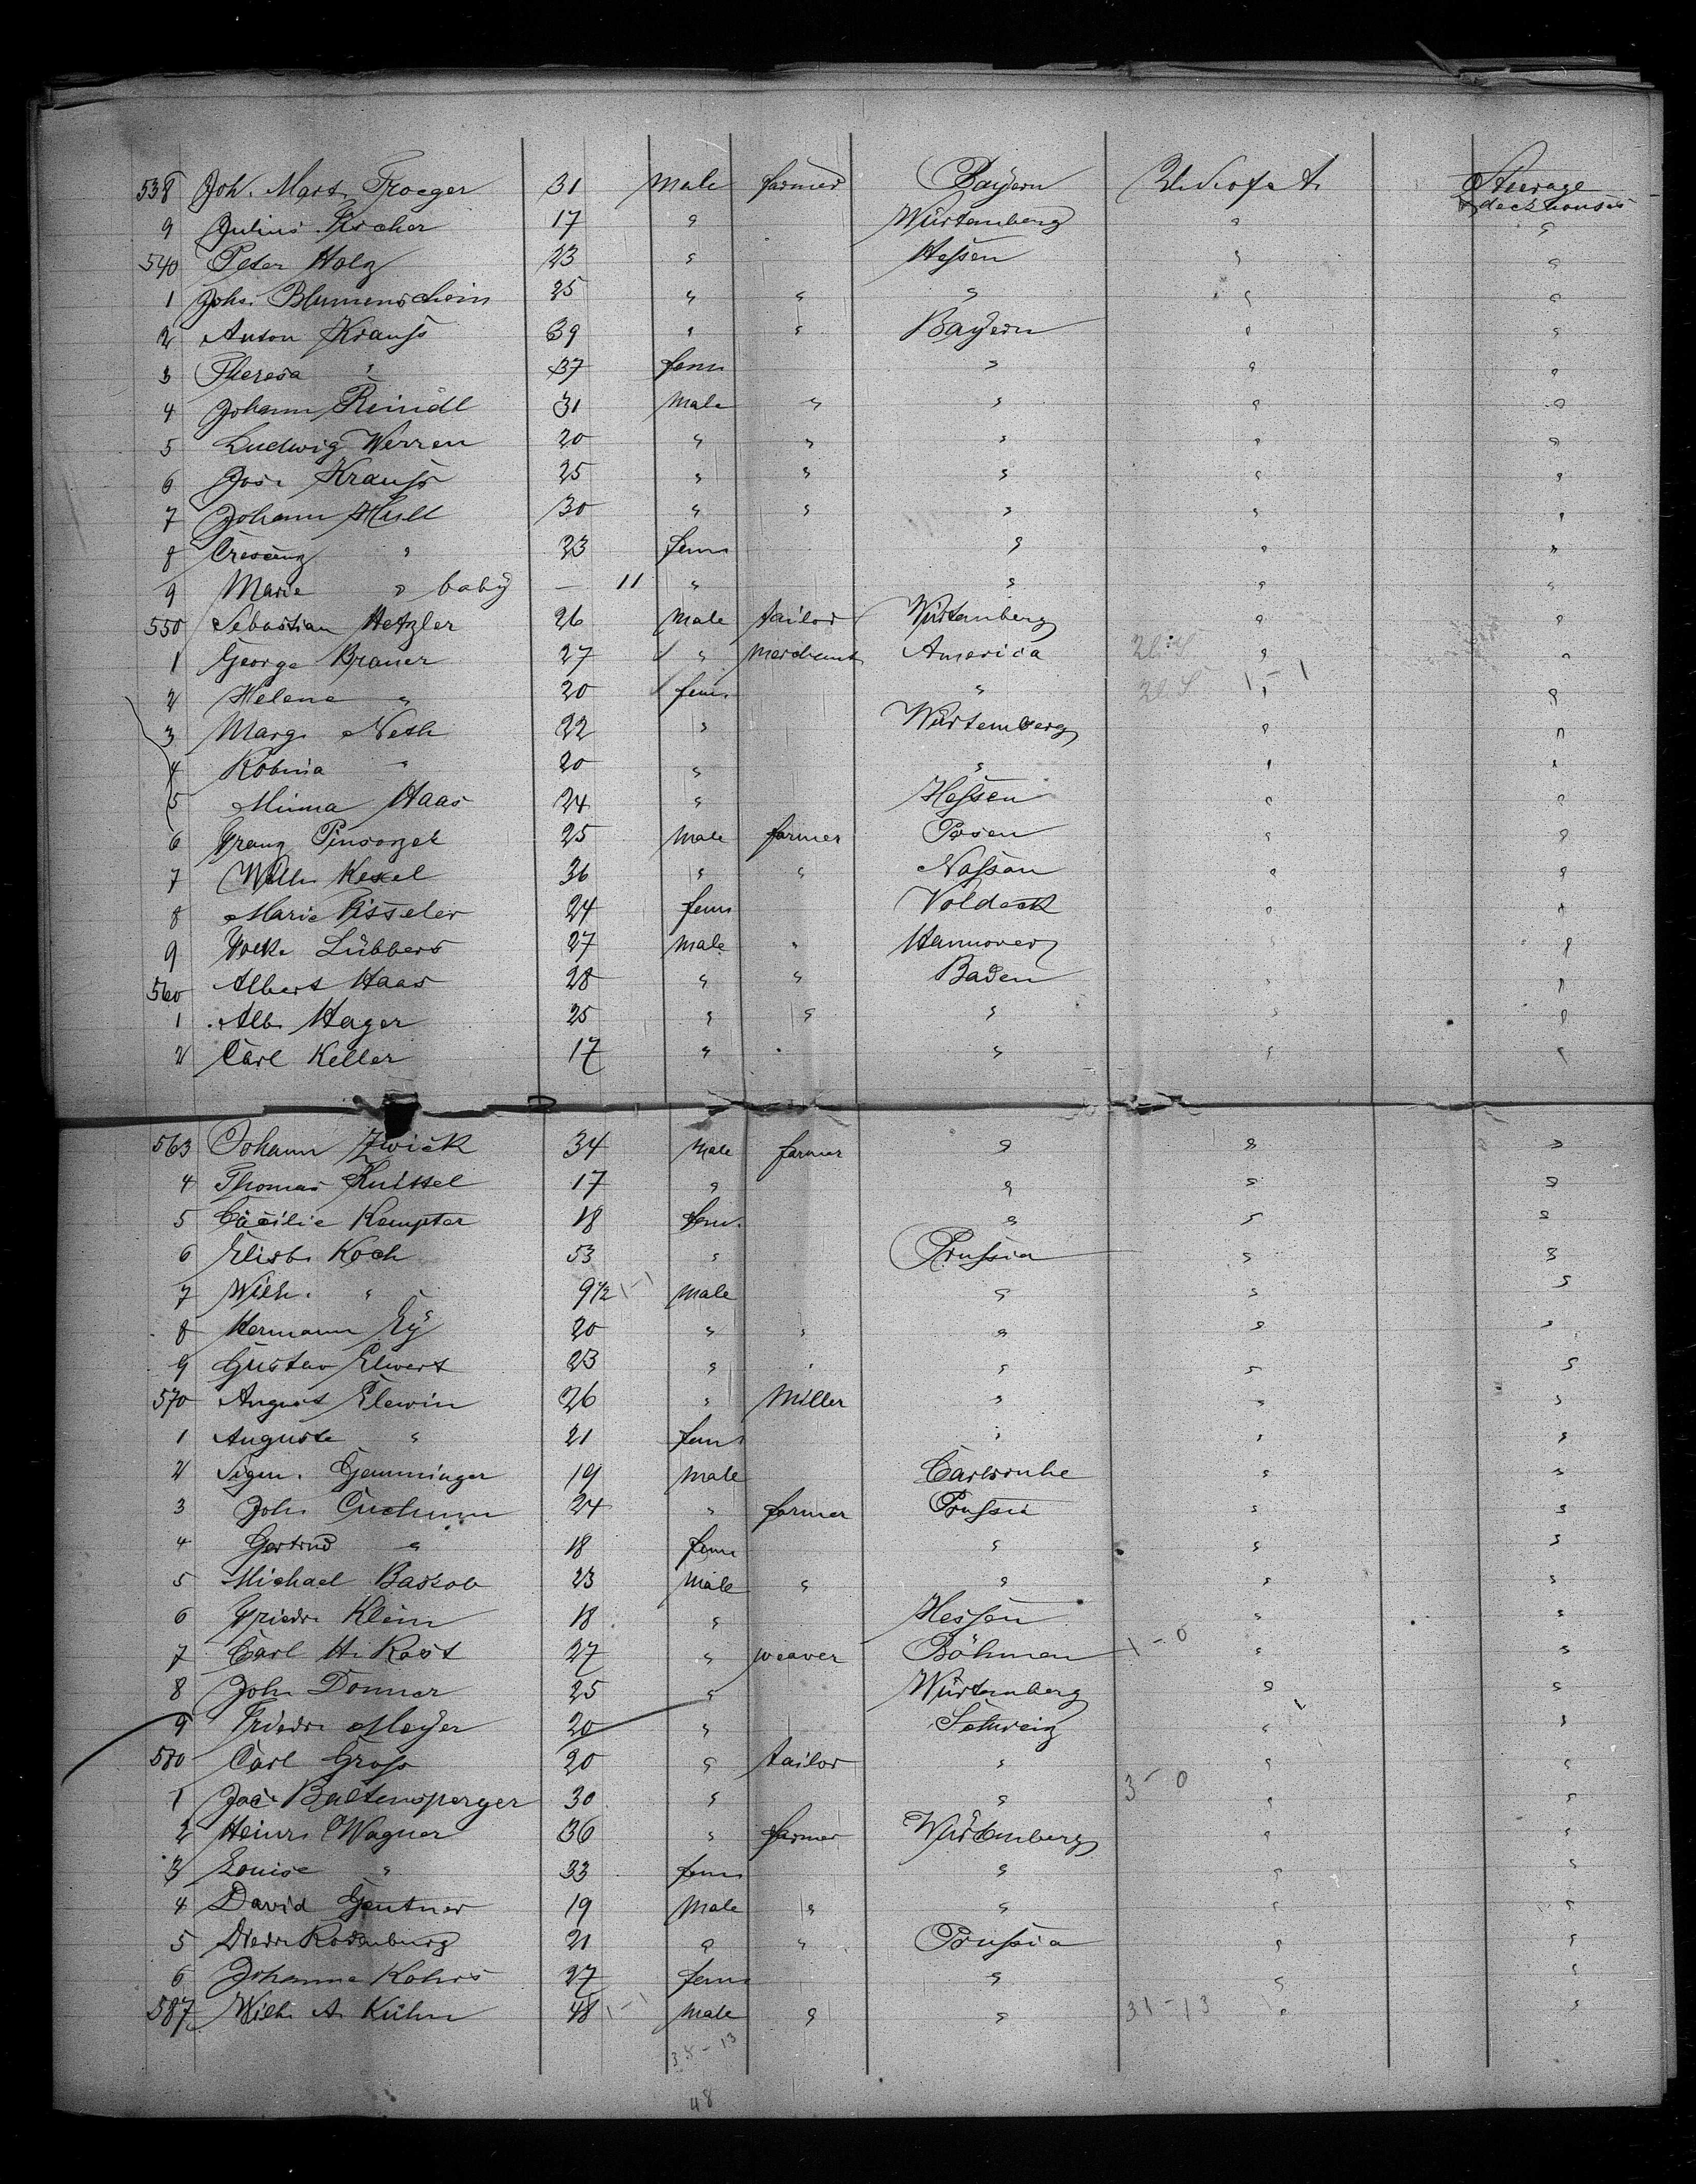 538 Joh. Mart. Troeger 31 male farmer Bayern U. S. of A. Steerage
& deckhouses
9 Julius Kocher 17 " Würtemberg " "
540 Peter Holz 23 " Hessen " "
1 Joh. Blumenschein 25 " " " " "
2 Anton Krauss 39 " " Bayern " "
3 Theresa " 37 fem " " "
4 Johann Reindl 31 male " " " "
5 Ludwig Werren 20 " " " " "
6 Jos. Krauss 25 " " " " "
7 Johann Hull 30 " " " " "
8 Crescenz " 23 fem " " "
9 Marie " baby — 11 " " " "
550 Sebastian Hetzler 26 male tailor Würtemberg " "
1 George Brauer 27 " Merchant America U. S. " "
2 Helene " 20 fem. " U. S. 1-1 " "
3 Marg. Neth 22 " Würtemberg " "
4 Robina " 20 " " " "
5 Minna Haas 24 " Hessen " "
6 Franz 25 male farmer Posen " "
7 Wilh. Kexel 36 " " Nassau " "
8 Marie Kisseler 24 fem Voldeck " "
9 Lübbers 27 male " Hannover " "
560 Albert Haas 28 " " Baden " "
1 Alb. Hager 25 " " " " "
2 Carl Keller 17 " " " " "
563 Johann Zwick 34 male farmer " " "
4 Thomas Knittel 17 " " " "
5 Cäcilie Kempter 18 fem. " " "
6 Elisb. Koch 53 " Prussia " "
7 Wilh. " 9 1/2 1-1 male " " "
8 Hermann Ey 20 " " " " "
9 Gustav Elwert 23 " " " " "
570 August Elewin 26 " Miller " " "
1 Auguste " 21 fem " " "
2 Sigm. Gemminger 19 male Carlsruhe " "
3 Joh. 24 " farmer Prussia " "
4 Gertrud " 18 fem " " "
5 Michael 23 male " " " "
6 Friedr. Klein 18 " Hessen " "
7 Carl H. Rost 27 " weaver Böhmen 1-0 " "
8 Joh. Donner 25 " Würtemberg " "
9 Friedr. Meyer 20 " Schweiz " "
580 Carl Gross 20 " tailor " " "
1 Jac. Baltensperger 30 " " 3-0 " "
2 Heinr. Wagner 36 " farmer Würtemberg " "
3 Louise " 33 fem " " "
4 David Gentner 19 male " " " "
5 Diedr. Rodenburg 21 " " Prussia " "
6 Johanne Kohrs 27 fem " " "
587 Wilh. A. Kühn 48 1-1 male " " 31-13 " "
35-13
48